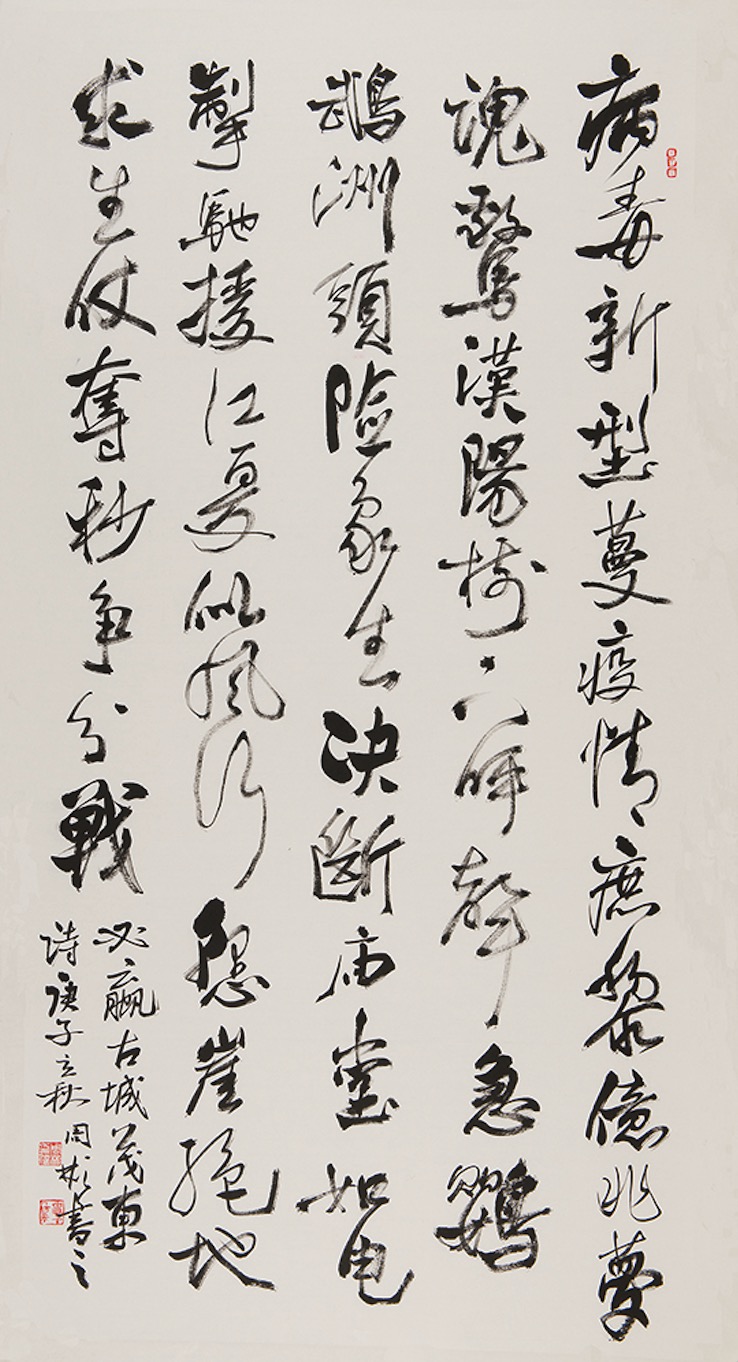 病毒新型蔓疫情庶黎億兆夢
魂驚漢陽樹下呼聲急鸚
鵡洲頭險象生決斷庙堂如电
掣馳援江夏似風行懸崖絕地
求生仗奪秒争分戰
必贏古城茂東
诗庚子立秋周彬書之